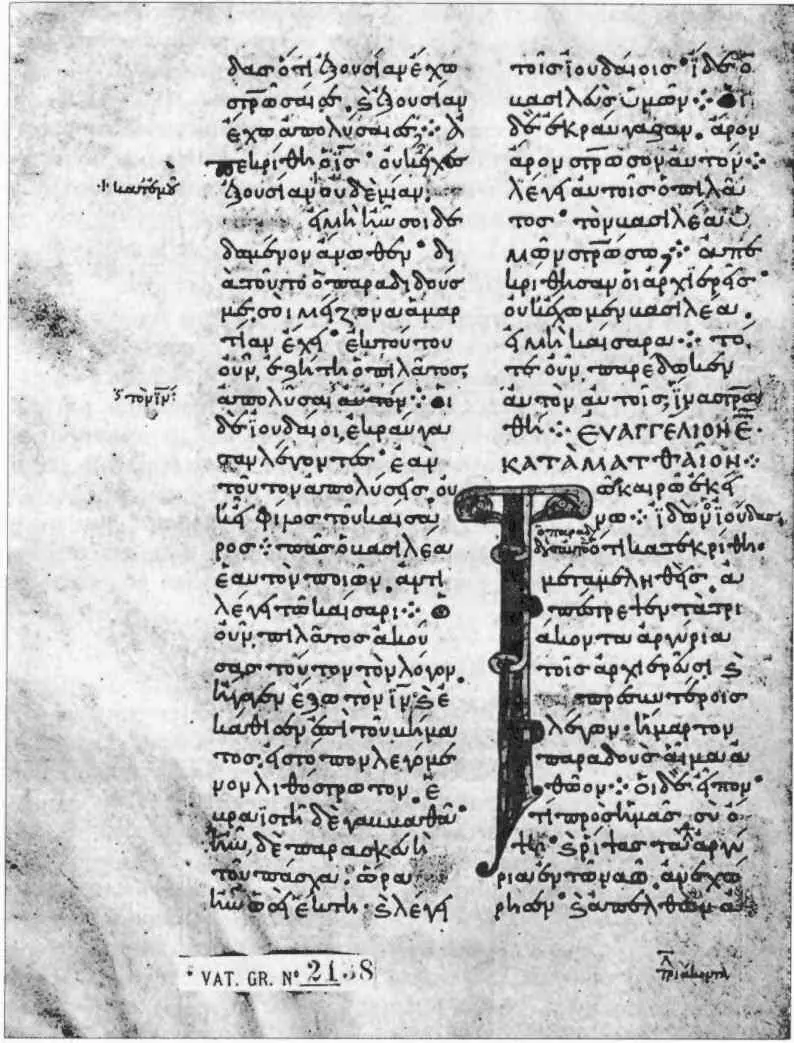 δας ὅτι ἐξουσίαν ἔχω
στρῶσαί σε. ϗ ἐξουσίαν
ἔχω ἀπολῦσαί σε; ⁘ ἀ
πεκρίθη ὁ ις· οὐκ ἔχεις
+ κατ' ἐμοῦ
ἐξουσίαν οὐδεμίαν
εἰ μὴ ἦν σοι δε
δομένον ἄνωθεν· δι
ἀτοῦτο ὁ παραδιδούς
με, σοὶ μείζονα ἁμαρ
τίαν ἔχει· ἐκ τούτου
οὖν, ἐζήτει ὁ πιλᾶτος,
τὸν ιν
ἀπολῦσαι αὐτόν ⁘ οἱ
δὲ ἰουδαῖοι, ἐκραύγα
σαν λέγοντες· ἐὰν
τοῦτον ἀπολύσῃς, οὐ
κ εἶ φίλος τοῦ καίσα
ρος ⁘ πᾶς ὁ βασιλέα
ἑαυτὸν ποιῶν, ἀντι
λέγει τῶ καίσαρι ⁘ ὁ
οὖν, πιλᾶτος ἀκού
σας τοῦτον τὸν λόγον,
ἤγαγεν ἔξω τὸν ιν· ϗ ἐ
κάθισεν ἐπὶ τοῦ βήμα
τος, εἰς τόπον λεγόμε
νον λιθόστρωτον, ἑ
βραϊστὶ δὲ γαββαθᾶ
ἦν, δὲ παρασκευὴ
τοῦ πάσχα, ὥρα
ἦν ὡσεὶ ἕκτη· ϗ λέγει
τοῖς ἰουδαίοις· ἴδε ὁ
βασιλεὺς ὑμῶν ⁘ οἱ
δὲ ἐκραύγαζαν, ἆρον
ἆρον στρωσον αὐτόν ⁘
λέγει αὐτοῖς ὁ πιλᾶ
τος· τὸν βασιλέα ὑ
μῶν στρώσω; ⁘ ἀπε
κρίθησαν οἱ ἀρχιερεῖς·
οὐκ ἔχομεν βασιλέα,
εἰ μὴ καίσαρα ⁘ τό
τε οὖν, παρέδωκεν
αὐτὸν αὐτοῖς, ἵνα στρω
θῆ ⁘ ΕΥΑΓΓΕΛΙΟΝ ΕΚ
ΚΑΤΑ ΜΑΤΘΑΙΟΝ ⁘
Τῶ καιρῶ ἐκεί
νω ⁘ ἰδὼν ἰούδας
ὁ παραδιδοὺς αὐτὸν ὅτι κατεκρίθη·
μεταμεληθεὶς, ἀ
πέστρεψεν τὰ τρι
άκοντα ἀργύρια
τοῖς ἀρχιερεῦσι ϗ
πρεσβυτέροις
λέγων· ἥμαρτον
παραδοὺς αἷμα ἀ
θῶον ⁘ οἱ δὲ εἶπον·
τί πρὸς ἡμᾶς, σὺ ὄ
ψῃ· ϗ ρίψας τὰ ἀργύ
ρια ἐν τῶ ναῶ, ἀνεχώ
ρησεν· ϗ ἀπελθὼν ἀ
τριάκοντα
VAT. GR. Nº 2138